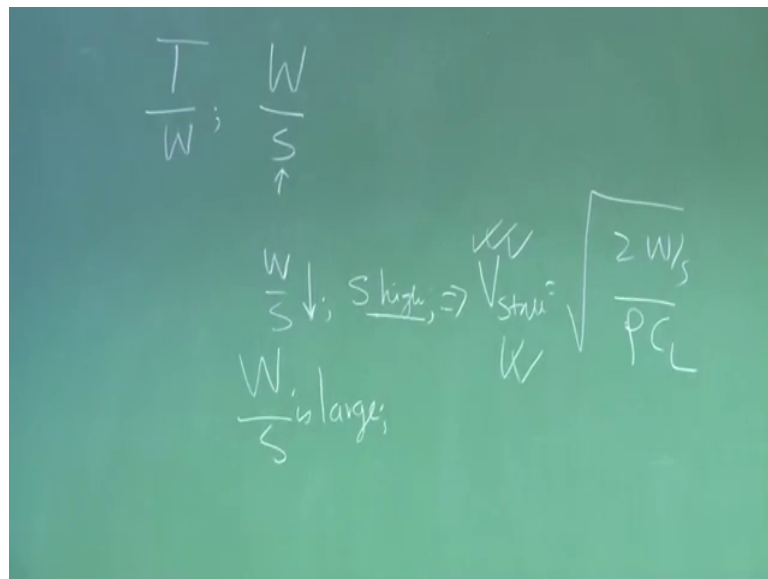 T/W; W/S
↑
W/S ↓; S high; ⇒ V_stall = √(2 W/S / ρ C_L)
W/S is large;